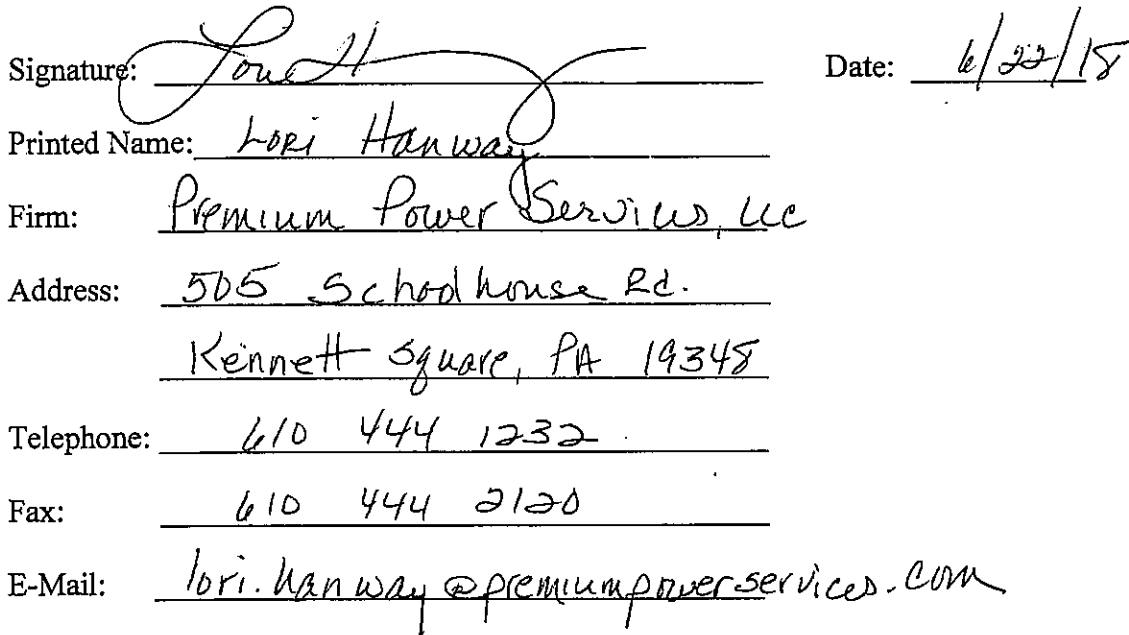 Signature: Lori H Date: 6/22/18
Printed Name: Lori Hanway
Firm: Premium Power Services, LLC
Address: 505 Schoolhouse Rd.
Kennett Square, PA 19348
Telephone: 610 444 1232
Fax: 610 444 2120
E-Mail: lori.hanway@premiumpowerservices.com